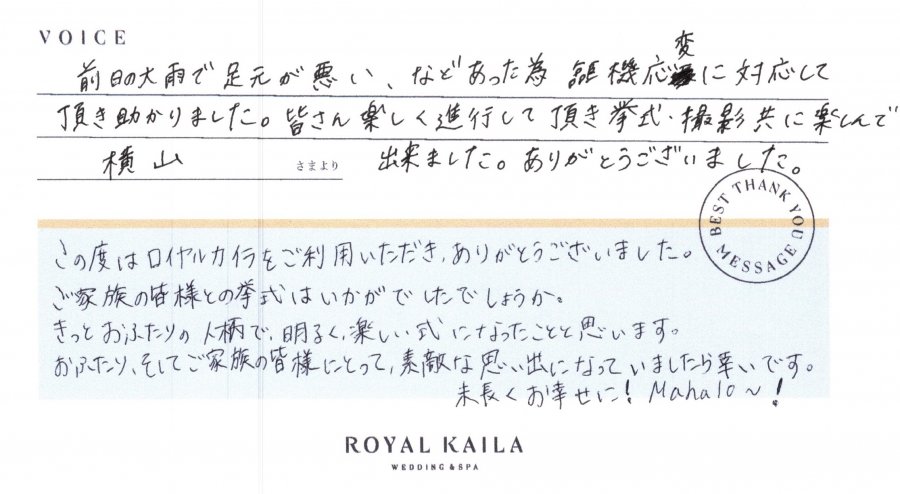 VOICE
前日の大雨で足元が悪い、などあった為 臨機応変に対応して
頂き助かりました。皆さん楽しく進行して頂き挙式・撮影共に楽しんで
横山 さまより 出来ました。ありがとうございました。
BEST THANK YOU MESSAGE
この度はロイヤルカイラをご利用いただき、ありがとうございました。
ご家族の皆様との挙式はいかがでしたでしょうか。
きっとおふたりの人柄で、明るく、楽しい式になったことと思います。
おふたり、そしてご家族の皆様にとって、素敵な思い出になっていましたら幸いです。
末長くお幸せに! Mahalo~!
ROYAL KAILA
WEDDING & SPA